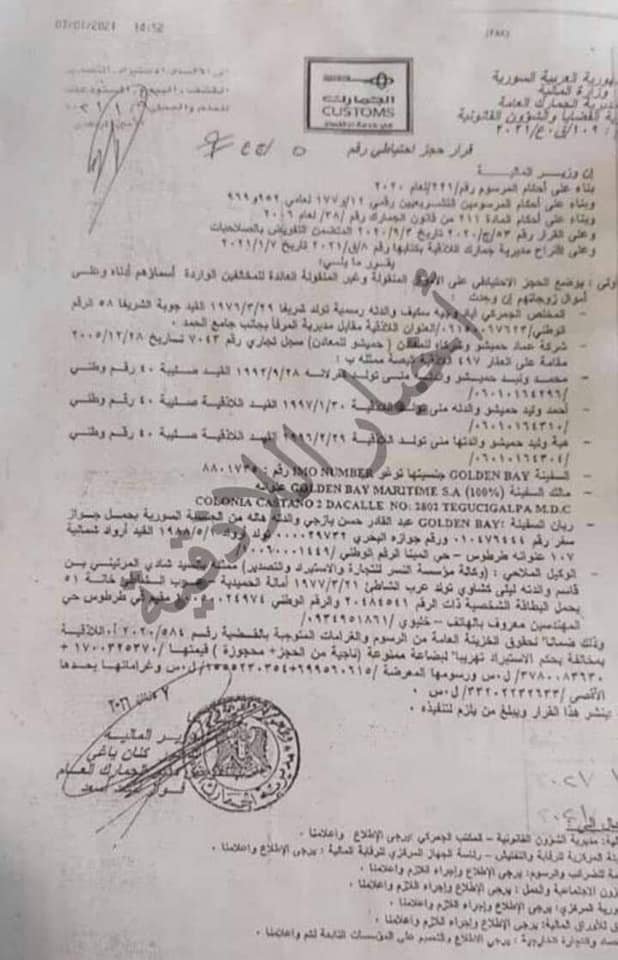 07/01/2021 14:52
(٢٨٨)
الجمهورية العربية السورية
وزارة المالية
مديرية الجمارك العامة
القضايا والشؤون القانونية
١٠٩/ق/ع/٢٠٢١
الجمارك
CUSTOMS
قرار حجز احتياطي رقم
إن وزير المالية
بناء على أحكام المرسوم رقم /٢٢١/ لعام ٢٠٢٠
وبناء على أحكام المرسومين التشريعيين رقمي ١٢/و ١٧٧ لعامي ٢٥٢ و ٩٦٩
وبناء على أحكام المادة ٢١١ من قانون الجمارك رقم /٣٨/ لعام ٢٠٠٦
وعلى القرار رقم ٥٣/ج/٢٠٢٠ تاريخ ٢٠٢٠/٩/٣ المتضمن التفويض بالصلاحيات
وعلى اقتراح مديرية جمارك اللاذقية بكتابها رقم ٨/ق/٢٠٢١ تاريخ ٢٠٢١/١/٧
يقرر ما يلي:
يوضع الحجز الاحتياطي على الأموال المنقولة وغير المنقولة العائدة للمخالفين الواردة أسماؤهم أدناه وعلى
أموال زوجاتهم إن وجدت :
- المخلص الجمركي اياد وجيه سكيف والدته رسمية تولد شريفا ١٩٧١/٣/٢٩ القيد جوبة الشريفا ٥٨ الرقم
العنوان اللاذقية مقابل مديرية المرفأ بجانب جامع الحمد .
- شركة عماد حميشو وشركاه للمعادن ( حميشو للمعادن) سجل تجاري رقم ٧٠٤٣ تاريخ ٢٠٠٥/١٢/٢٨
مقامة على العقار ٤٩٧ اللاذقية ممثلة ب :
- محمد وليد حميشو والدته منى تولد ١٩٩٢/٩/٢٨ القيد اللاذقية صليبة ٤٠ رقم وطني
/٠٦٠١٠١٦٤٢٩٦/
- أحمد وليد حميشو والدته منى تولد اللاذقية ١٩٩٧/١/٣٠ القيد اللاذقية صليبة ٤٠ رقم وطني
/٠٦٠١٠١٦٤٣١٠/
- هبة وليد حميشو والدتها منى تولد اللاذقية ١٩٩٦/٢/٢٩ القيد اللاذقية صليبة ٤٠ رقم وطني
/٠٦٠١٠١٦٤٣٠٤/
- السفينة GOLDEN BAY جنسيتها توغو IMO NUMBER رقم : ٨٨٠١٧٣٥
- مالك السفينة (100%) GOLDEN BAY MARITIME S.A عنوانه
COLONIA CASTANO 2 DACALLE NO: 2802 TEGUCIGALPA M.D.C
- ربان السفينة GOLDEN BAY: عبد القادر حسن يازجي والدته هاله من الجنسية السورية يحمل جواز
سفر رقم ٠١٠٤٧٦٤٤٤ ورقم جوازه البحري ٠٠٠٠٢٩٧٣٢ تولد أرواد ١٩٨٨/٥/١ القيد أرواد شمالية
١٠٧ عنوانه طرطوس – حي المينا الرقم الوطني
- الوكيل الملاحي : (وكالة مؤسسة النسر للتجارة والاستيراد والتصدير) ممثلة بالسيد شادي المرتيني بن
قاسم والدته ليلى كشاوي تولد عرب الشاطئ ١٩٧٧/٣/٢١ أمانة الحميدية عرب الشاطئ خانة ٥١
يحمل البطاقة الشخصية ذات الرقم ٢٠٤٨٤٥٤١ والرقم الوطني مقيم في طرطوس حي
المهندسين معروف بالهاتف – خليوي /٠٩٣٤٩٥١٨٦١/
وذلك ضمانا لحقوق الخزينة العامة من الرسوم والغرامات المتوجبة بالقضية رقم ٢٠٢٠/٥٨٤ اللاذقية
بمخالفة بحكم الاستيراد تهريبا لبضاعة ممنوعة (ناجية من الحجز+ محجوزة ) قيمتها /١٧٠٠٣٢٥٣٧٠ +
٣٧٨٠٠٨٣٦٣٠/ ل.س ورسومها المعرضة ل.س وغراماتها بحدها
الأقصى /٣٣٢٠٢٢٣٢٦٣٣/ ل.س .
ينشر هذا القرار ويبلغ من يلزم لتنفيذه .
وزير المالية
كنان ياغي
مدير الجمارك العام
فواز أسعد
أنصار اللاذقية
مديرية الشؤون القانونية – للمكتب الجمركي : يرجى الإطلاع وإعلامنا .
المركزية للرقابة والتفتيش – رئاسة الجهاز المركزي للرقابة المالية : يرجى الإطلاع وإعلامنا .
للضرائب والرسوم: يرجى الإطلاع وإجراء اللازم وإعلامنا .
الاجتماعية والعمل : يرجى الإطلاع وإجراء اللازم وإعلامنا .
المركزي: يرجى الإطلاع وإجراء اللازم وإعلامنا .
للأوراق المالية: يرجى الإطلاع وإجراء اللازم وإعلامنا .
والتجارة الخارجية : يرجى الإطلاع والتعميم على المؤسسات التابعة لكم وإعلامنا .